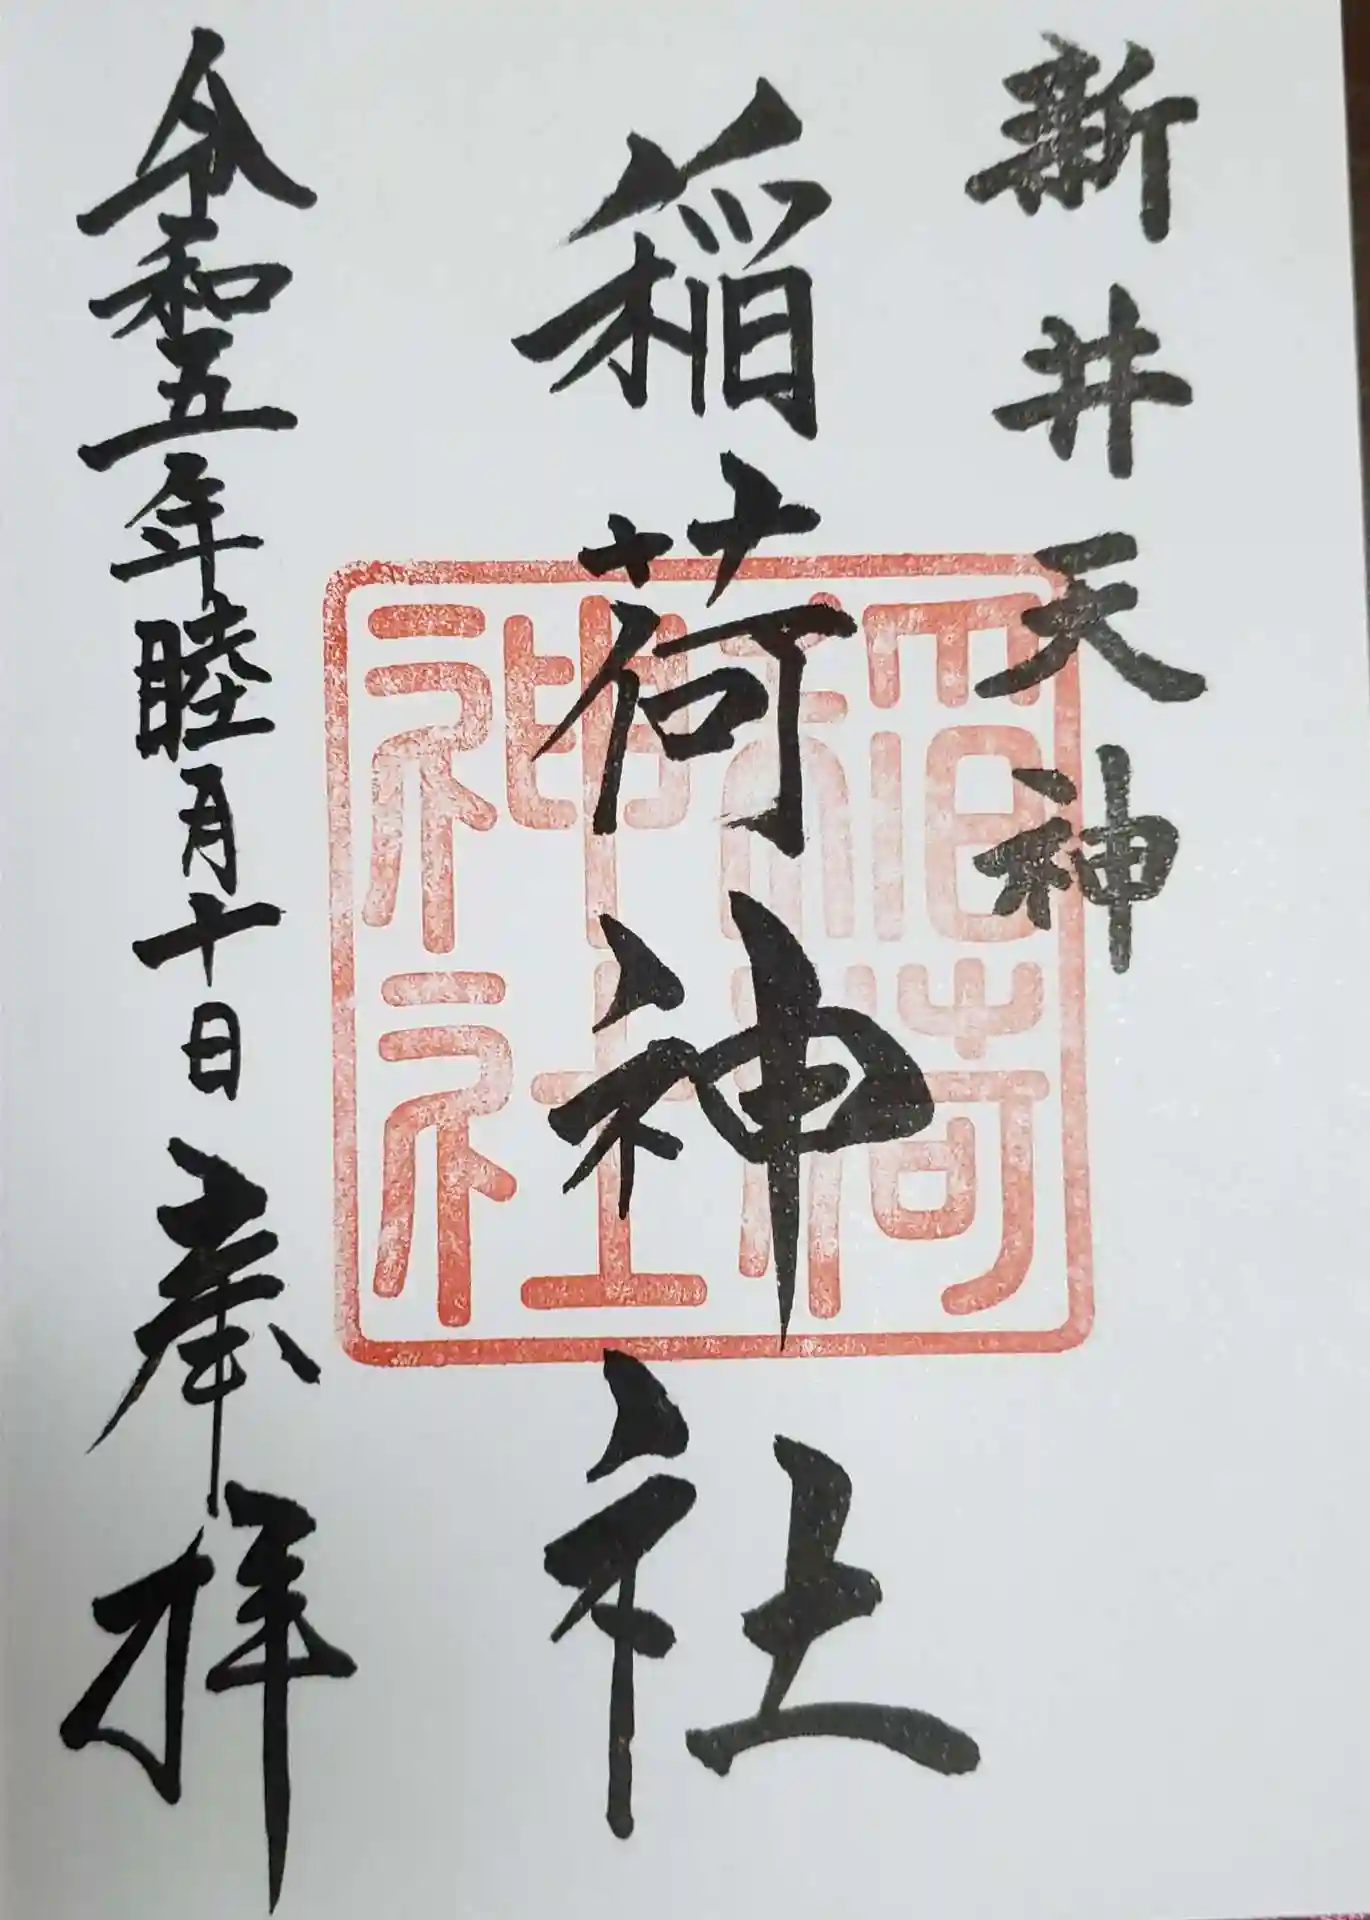 新井天神
稲荷神社
稲荷
神社
令和五年睦月十日 奉拝